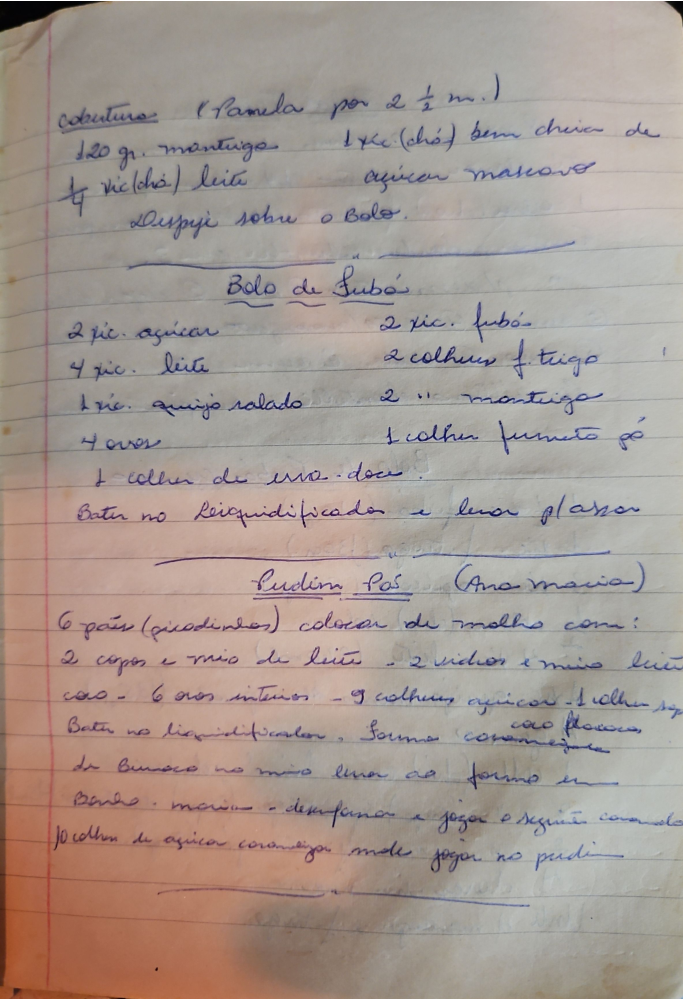 cobertura (Panela por 2 1/2 m.)
120 gr. manteiga 1 xic.(chá) bem cheia de
1/4 xic(chá) leite açúcar mascavo
Despeje sobre o Bolo.
Bolo de Fubá
2 xic. açúcar 2 xic. fubá
4 xic. leite 2 colheres f. trigo
1 xic. queijo ralado 2 " manteiga
4 ovos 1 colher fermento pó
1 colher de erva-doce.
Bater no Leiquidificador e levar p/assar
Pudim Pão (Ana maria)
6 pães (picadinhos) colocar de molho com:
2 copos e meio de leite - 2 vidros e meio leite
coco - 6 ovos inteiros - 9 colheres açúcar - 1 colher sop
coco flococos
Bater no liquidificador. Forma
de Buraco no meio levar ao forno em
Banho-maria - desenformar e jogar o seguinte
10 colher de açúcar jogar no pudim